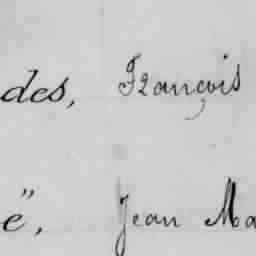 des, François
e", Jean Ma